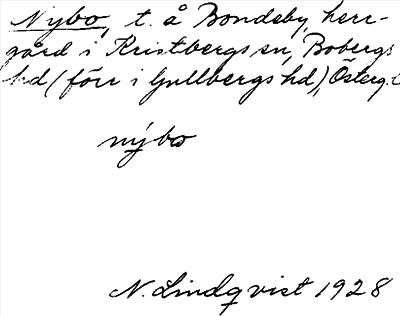 Nybo, t. å Bondeby, herr-
gård i Kristbergs sn, Bobergs
hd (förr i Gullbergs hd), Österg.
nýbo
N. Lindqvist 1928